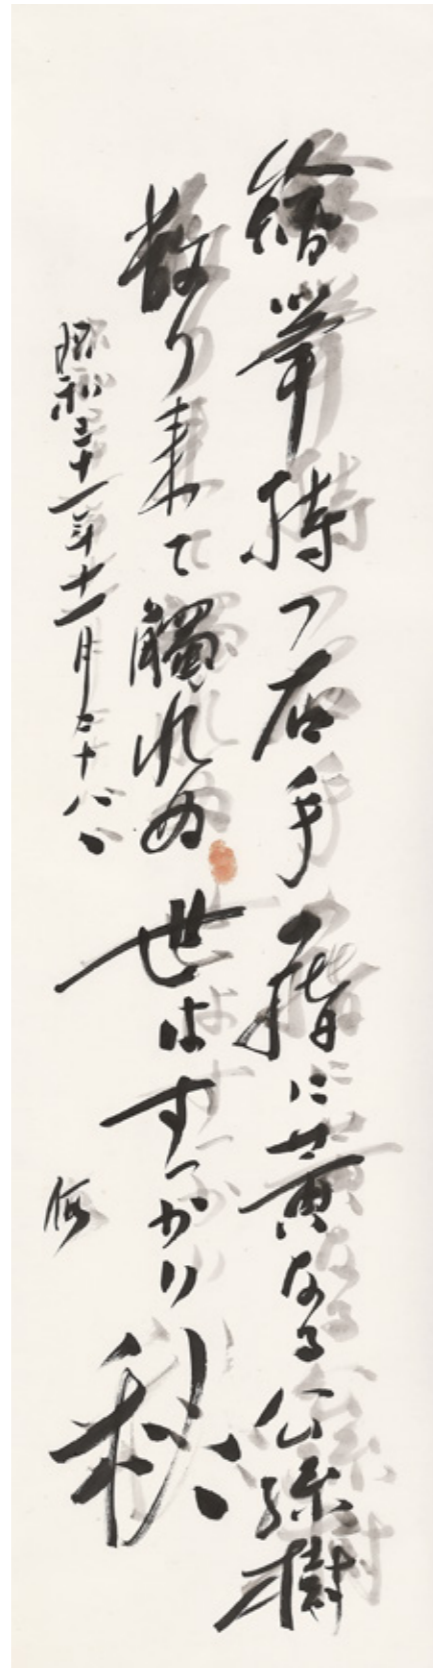 繪筆持つ右手の指に黄なる公孫樹
散り来て觸れぬ世はすつかり秋
昭和三十一年十一月二十八日